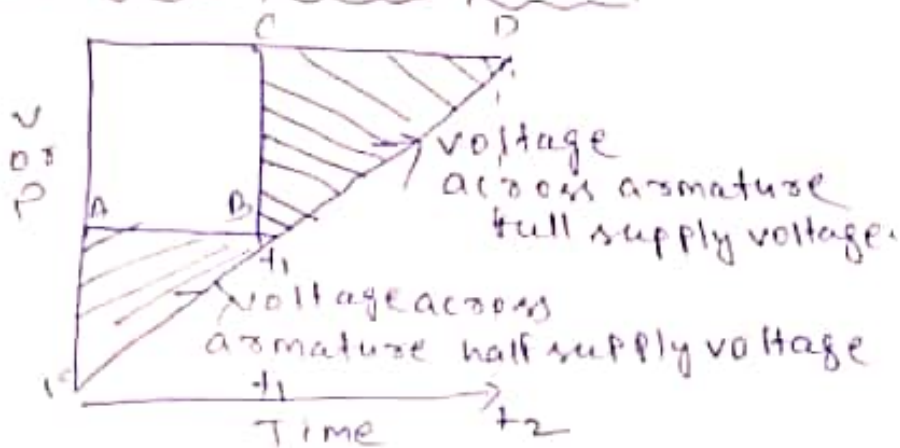 C D
V
or
P
A B
voltage
across armature
full supply voltage.
t1
voltage across
armature half supply voltage
t1
Time t2